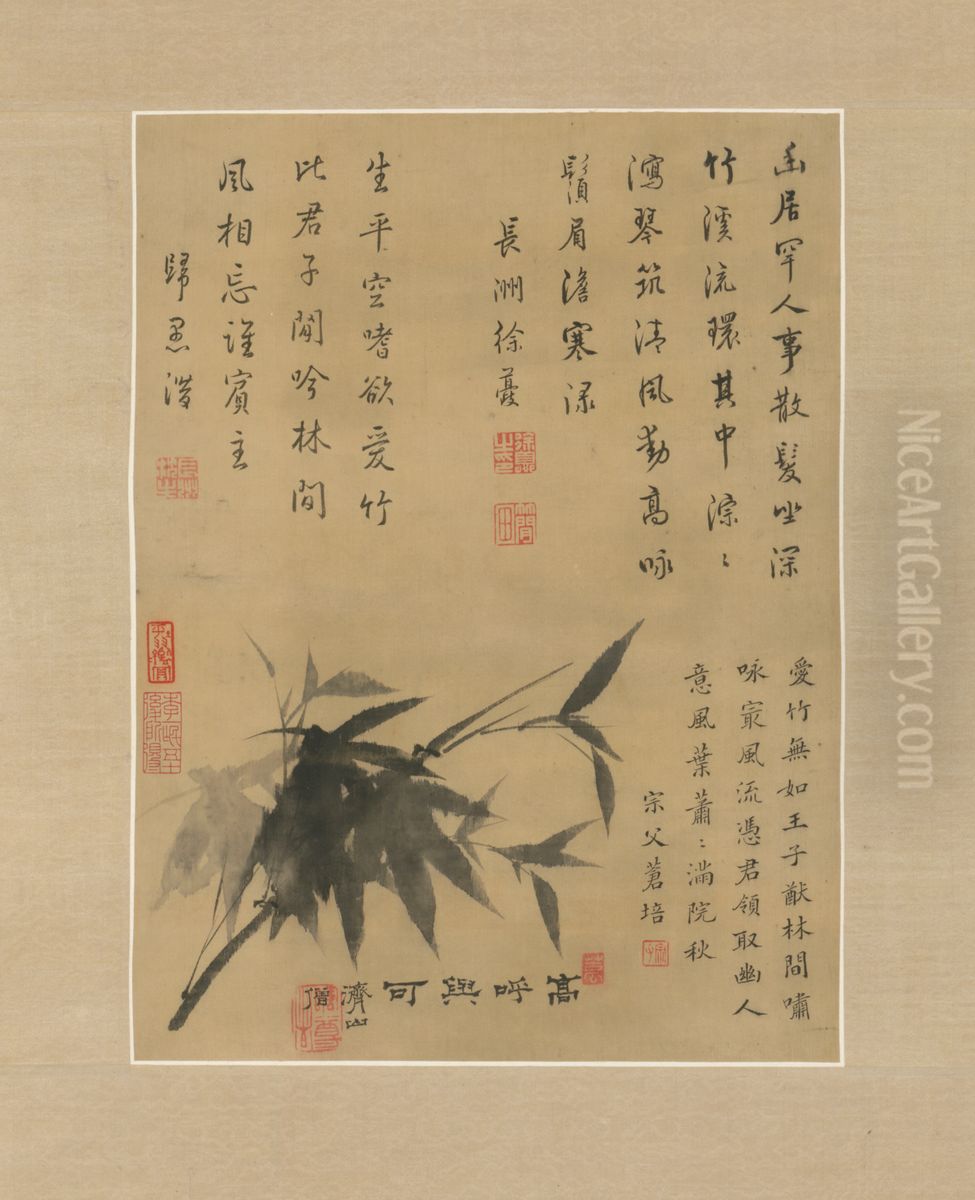 幽居罕人事散髮坐深
竹溪流環其中淙〻
瀉琴筑清風動高咏
鬚眉澹寒渌
長洲徐葽
生平空嗜欲愛竹
比君子閒吟林間
風相忘誰賓主
歸愚濬
愛竹無如王子猷林間嘯
咏最風流憑君領取幽人
意風葉蕭〻滿院秋
宗父蒼培
高呼與可
濟山僧
NiceArtGallery.com